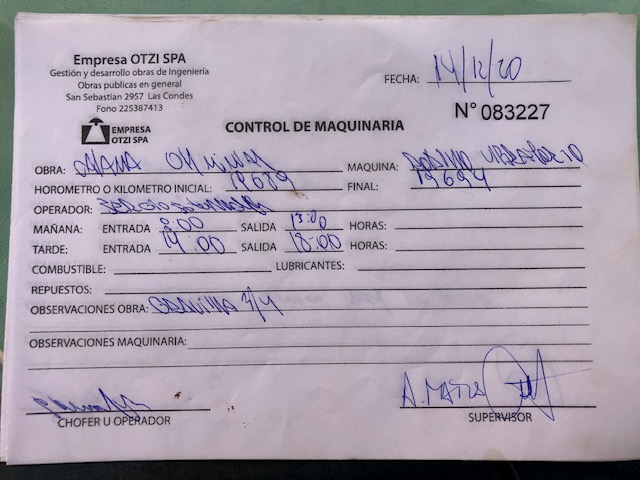 Empresa OTZI SPA
Gestión y desarrollo obras de Ingeniería
Obras públicas en general
San Sebastian 2957 Las Condes
Fono 225387413
FECHA: 14/12/20
EMPRESA
OTZI SPA
CONTROL DE MAQUINARIA
N° 083227
OBRA: MAQUINA:
HOROMETRO O KILOMETRO INICIAL: 12689 FINAL: 12694
OPERADOR:
MAÑANA: ENTRADA 8:00 SALIDA 13:00 HORAS:
TARDE: ENTRADA 14:00 SALIDA 18:00 HORAS:
COMBUSTIBLE: LUBRICANTES:
REPUESTOS:
OBSERVACIONES OBRA:
OBSERVACIONES MAQUINARIA:
CHOFER U OPERADOR
SUPERVISOR